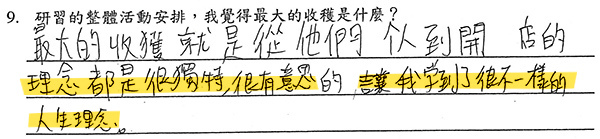 9. 研習的整體活動安排,我覺得最大的收穫是什麼?
最大的收獲就是從他們 到開店的
理念都是很獨特,很有意思的,讓我學到了很不一樣的
人生理念。